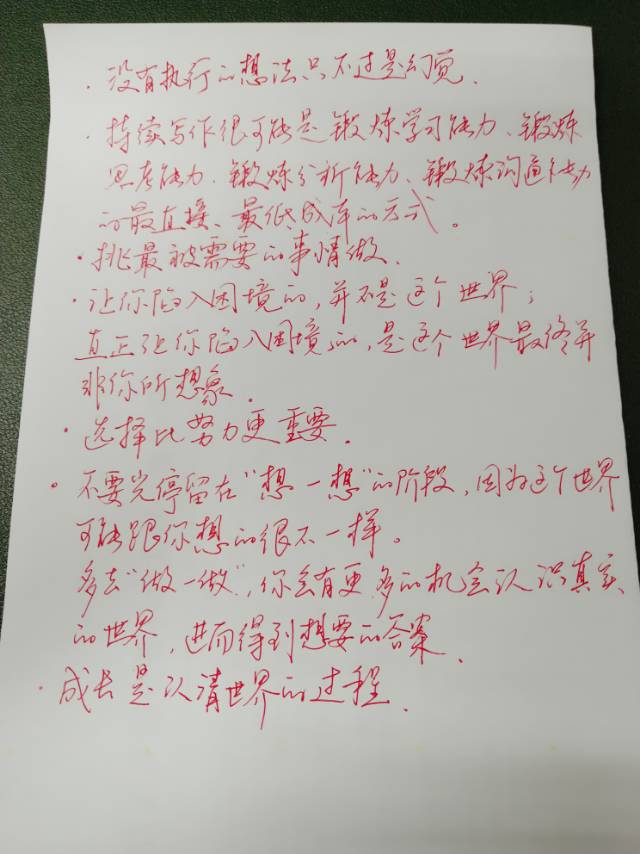 · 没有执行的想法只不过是幻觉.
· 持续写作很可能是锻炼学习能力、锻炼
思考能力、锻炼分析能力、锻炼沟通能力
的最直接、最低成本的方式。
· 挑最被需要的事情做.
· 让你陷入困境的,并不是这个世界;
真正让你陷入困境的,是这个世界最终并
非你所想象.
· 选择比努力更重要.
。不要光停留在“想一想”的阶段,因为这个世界
可能跟你想的很不一样。
多去“做一做”,你会有更多的机会认识真实
的世界,进而得到想要的答案.
· 成长是认清世界的过程.